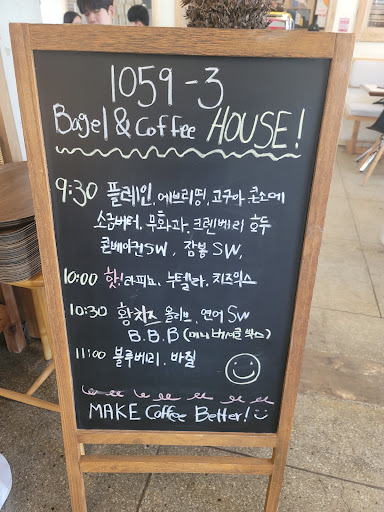 1059-3
Bagel & Coffee HOUSE!
9:30 플레인, 에브리띵, 고구마 콘소메
소금버터, 무화과, 크랜베리 호두
콘베이컨SW, 잠봉 SW,
10:00 핫! 라피뇨, 누텔라, 치즈믹스
10:30 황치즈 올리브, 연어 SW
B.B.B (미니 박스)
11:00 블루베리, 바질
MAKE Coffee Better!